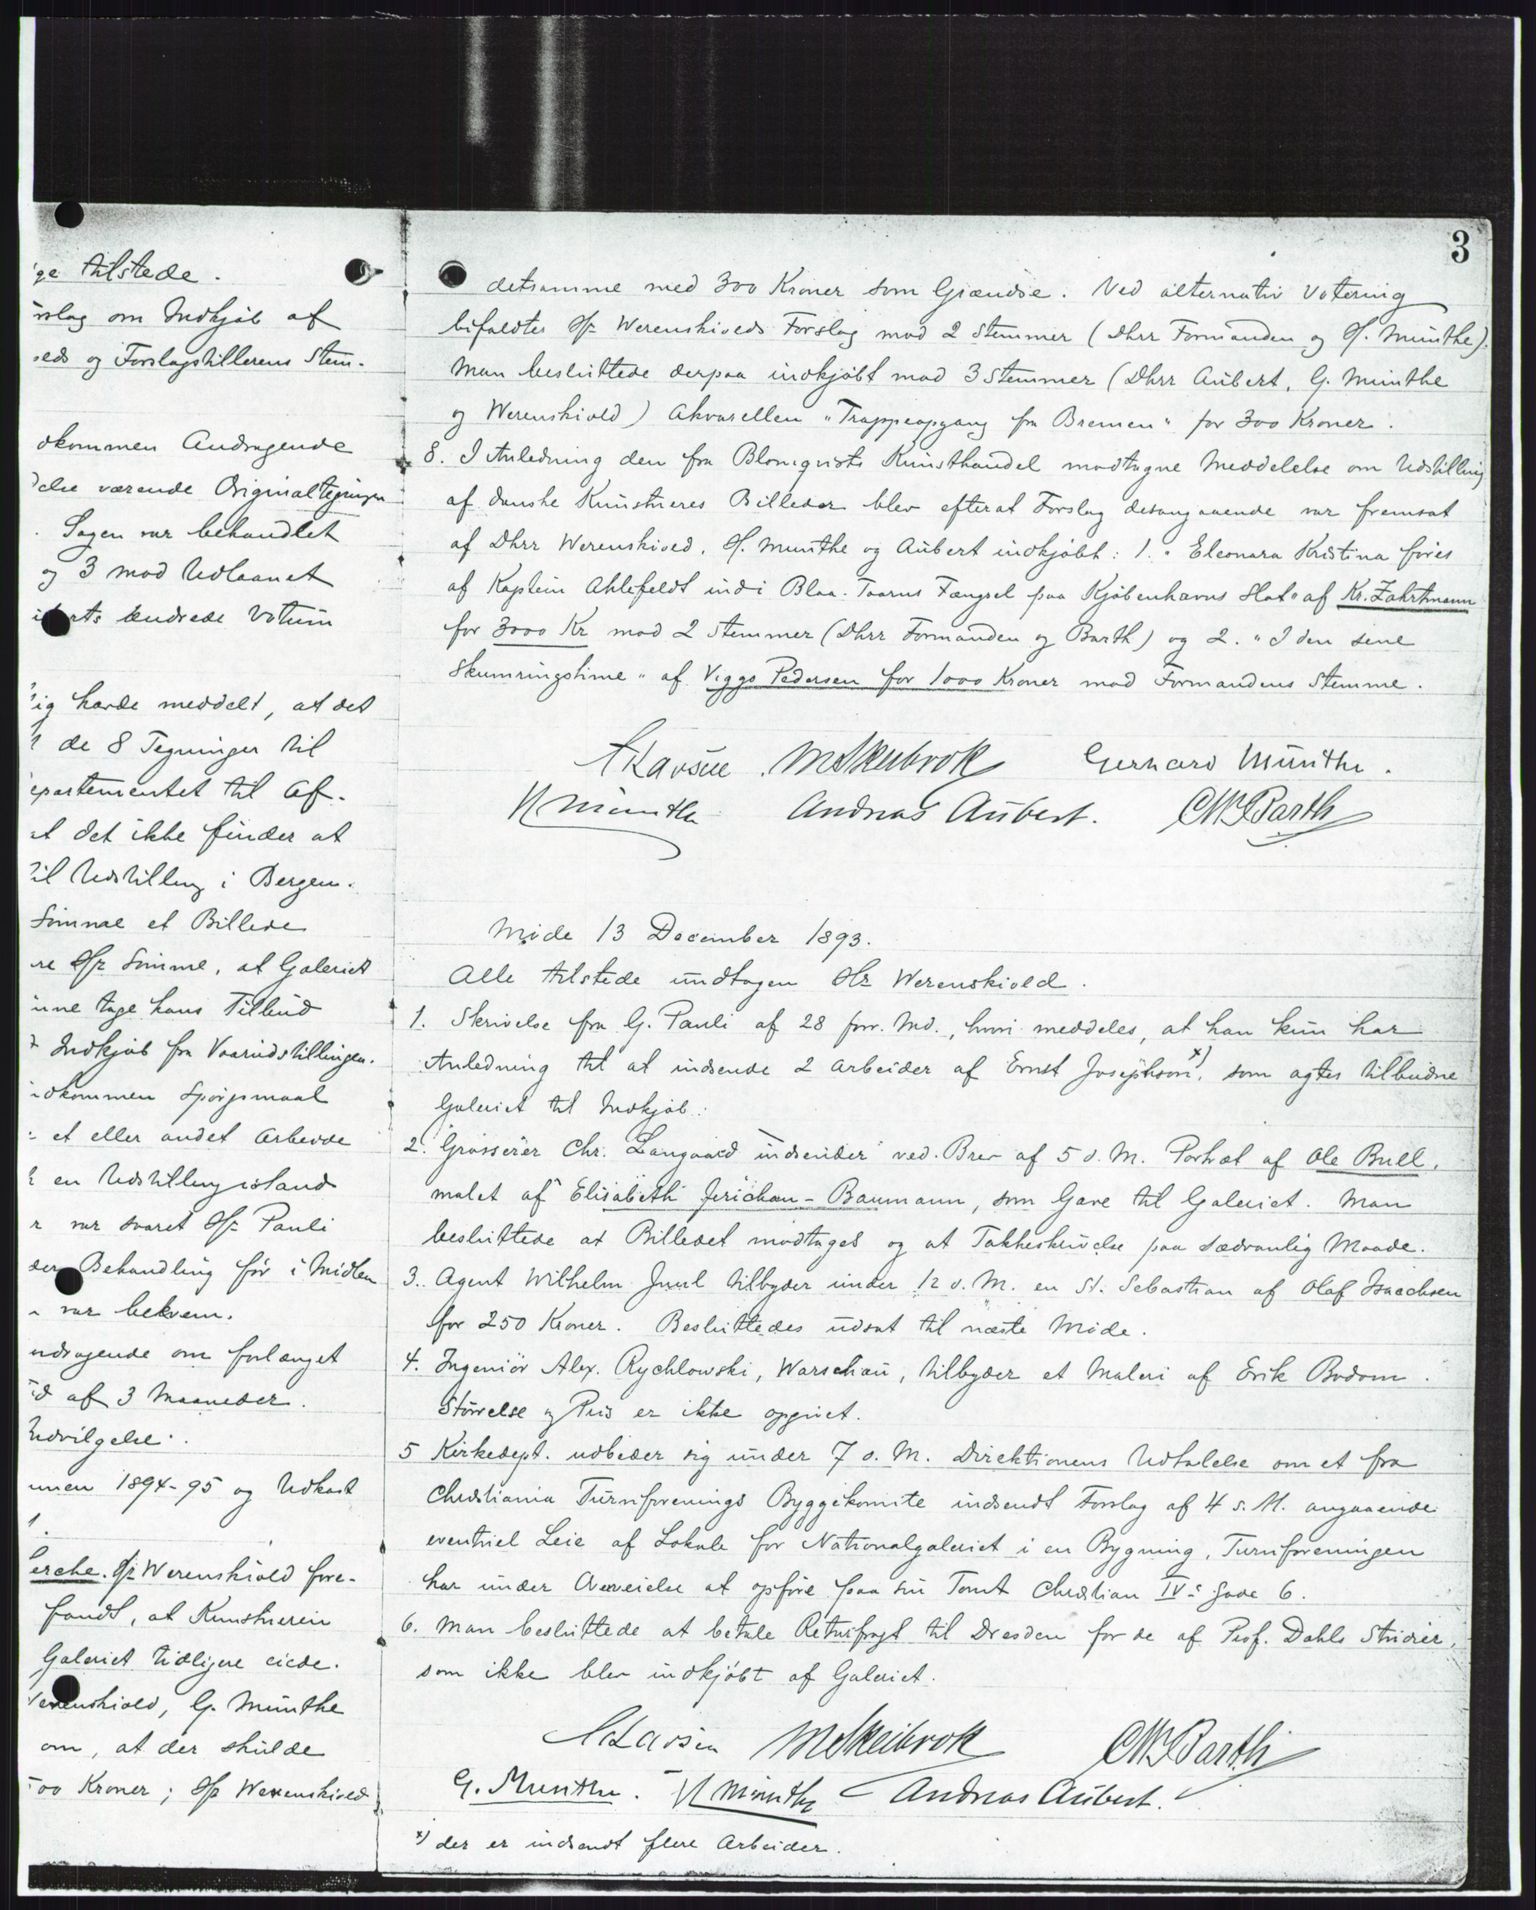 ge tilstede.
slag om Indkjøb af
eds og Forslagstillerens Stem-
dkommen Andragende
delse værende Originaltegninger
. Sagen var behandlet
og 3 mod Udlaanet
erts ændrede Votum
sig havde meddelt, at det
de 8 Tegninger til
epartementet til Af-
at det ikke finder at
til Udstilling i Bergen.
Simme et Billede
re Hr Simme, at Galeriet
unne tage hans Tilbud
Indkjøb fra Vaarudstillingen.
idkommen Spørgsmaal
et eller andet Arbeide
en Udstilling istand
r var svaret Hr Pauli
der Behandling før i Midten
n var bekvem.
ndragende om forlænget
id af 3 Maaneder.
Indvilgelse.
unen 1894-95 og Udkast
1.
Lerche. Hr Werenskiold fore-
fandt, at Kunstneren
Galeriet tidligere eiede.
Werenskiold, G. Munthe
om, at der skulde
500 Kroner; Hr Werenskiold
3
detsamme med 300 Kroner som Grændse. Ved alternativ Votering
bifaldtes Hr Werenskiolds Forslag mod 2 Stemmer (Dhrr Formanden og H. Munthe).
Man besluttede derpaa indkjøbt mod 3 Stemmer (Dhrr Aubert, G. Munthe
og Werenskiold) Akvarellen "Trappeopgang fra Bremen" for 300 Kroner.
8. I Anledning den fra Blomqvists Kunsthandel modtagne Meddelelse om Udstilling
af danske Kunstneres Billeder blev efterat Forslag desangaaende var fremsat
af Dhrr Werenskiold, H. Munthe og Aubert indkjøbt: 1. "Eleonara Kristina føres
af Kaptein Ahlefeldt ind i Blaa-Taarns Fængsel paa Kjøbenhavns Slot" af Kr. Zahrtmann
for 3000 Kr mod 2 Stemmer (Dhrr Formanden og Barth) og 2. "I den sene
Skumringstime" af Viggo Pedersen for 1000 Kroner mod Formandens Stemme.
S Larsen. M Skeibrok Gerhard Munthe.
H Munthe Andreas Aubert. CW Barth
Møde 13 December 1893.
Alle tilstede undtagen Hr Werenskiold.
1. Skrivelse fra G. Pauli af 28 forr. Md., hvori meddeles, at han kun har
Anledning til at indsende 2 Arbeider af Ernst Josephson x), som agtes tilbudne
Galeriet til Indkjøb.
2. Grosserer Chr. Langaard indsender ved Brev af 5 d. M. Portræt af Ole Bull,
malet af Elisabeth Jerichau-Baumann, som Gave til Galeriet. Man
besluttede at Billedet modtages og at Takkeskrivelse paa sædvanlig Maade.
3. Agent Wilhelm Juul tilbyder under 12 d. M. en St. Sebastian af Olaf Isaachsen
for 250 Kroner. Besluttedes udsat til næste Møde.
4. Ingeniør Alex. Rychlowski, Warschau, tilbyder et Maleri af Erik Bodom.
Størrelse og Pris er ikke opgivet.
5 Kirkedept. udbeder sig under 7 d. M. Direktionens Udtalelse om et fra
Christiania Turnforenings Byggekomite indsendt Forslag af 4 s. M. angaaende
eventuel Leie af Lokale for Nationalgaleriet i en Bygning, Turnforeningen
har under Overveielse at opføre paa sin Tomt Christian IVs Gade 6.
6. Man besluttede at betale Returfragt til Dresden for de af Prof. Dahls Studier,
som ikke blev indkjøbt af Galeriet.
S Larsen M Skeibrok CW Barth
G. Munthe. H Munthe Andreas Aubert.
x) der er indsendt flere Arbeider.